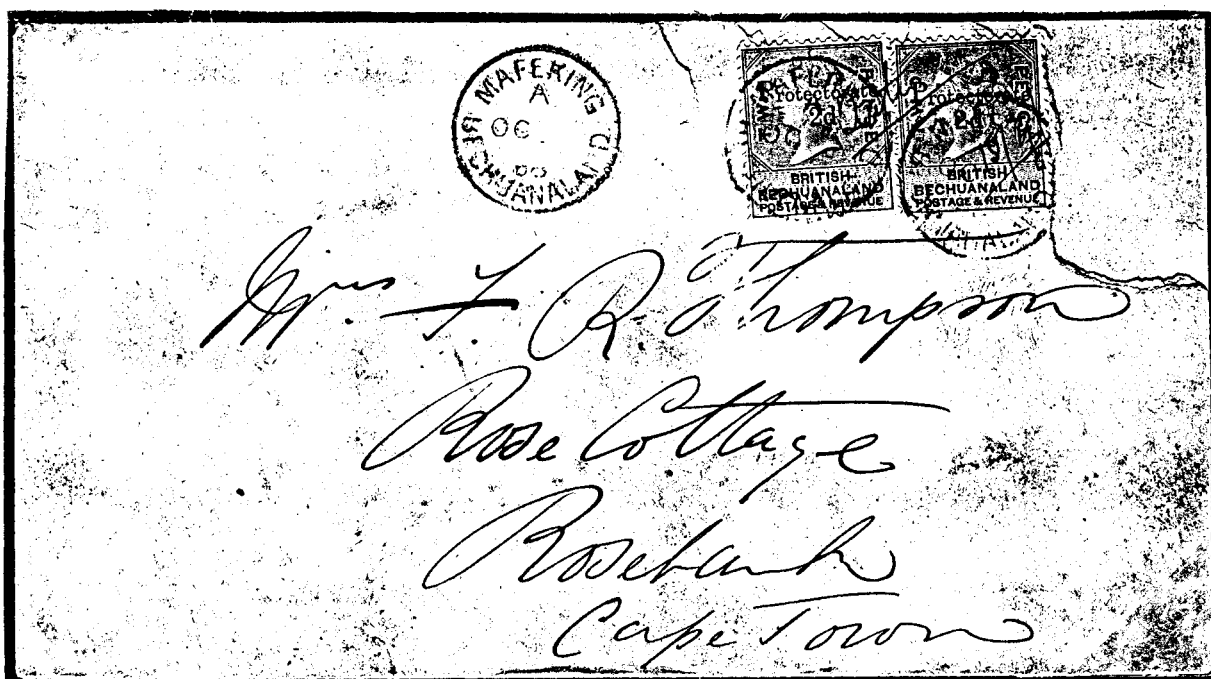 MAFEKING
A
OC
BECHUANALAND
Protectorate
2d
BRITISH
BECHUANALAND
POSTAGE & REVENUE
Protectorate
2d
BRITISH
BECHUANALAND
POSTAGE & REVENUE
Mrs. F. R. Thompson
Rose Cottage
Rosebank
Cape Town